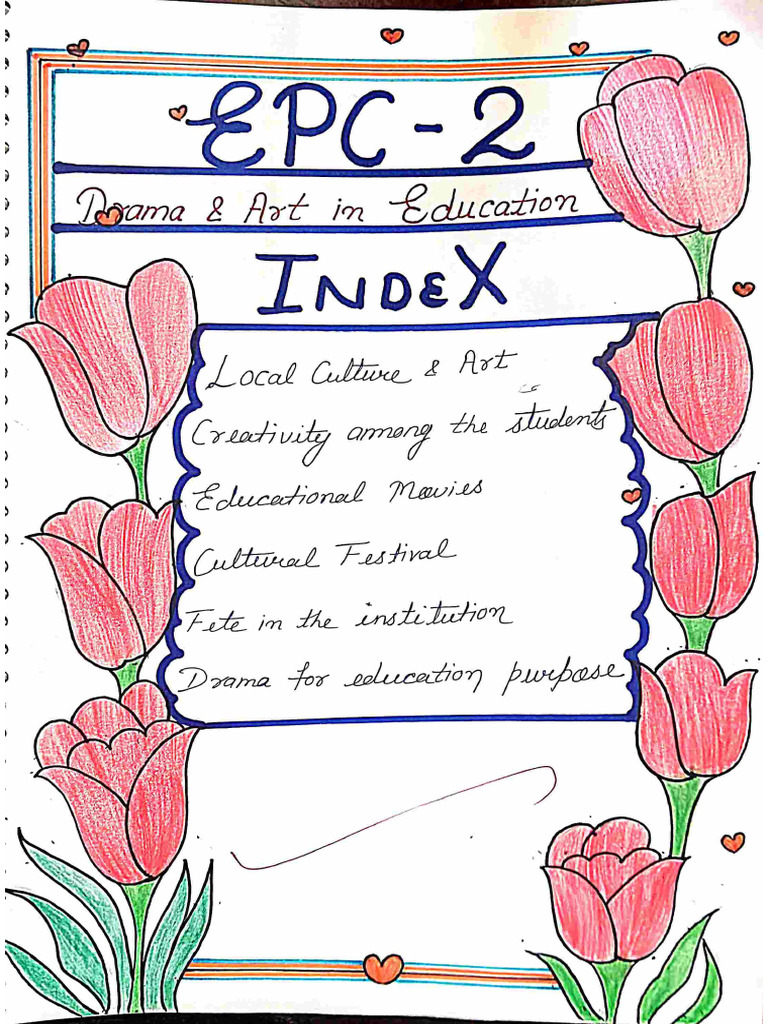 EPC - 2
Drama & Art in Education
INDEX
Local Culture & Art
Creativity among the students
Educational Movies
Cultural Festival
Fete in the institution
Drama for education purpose